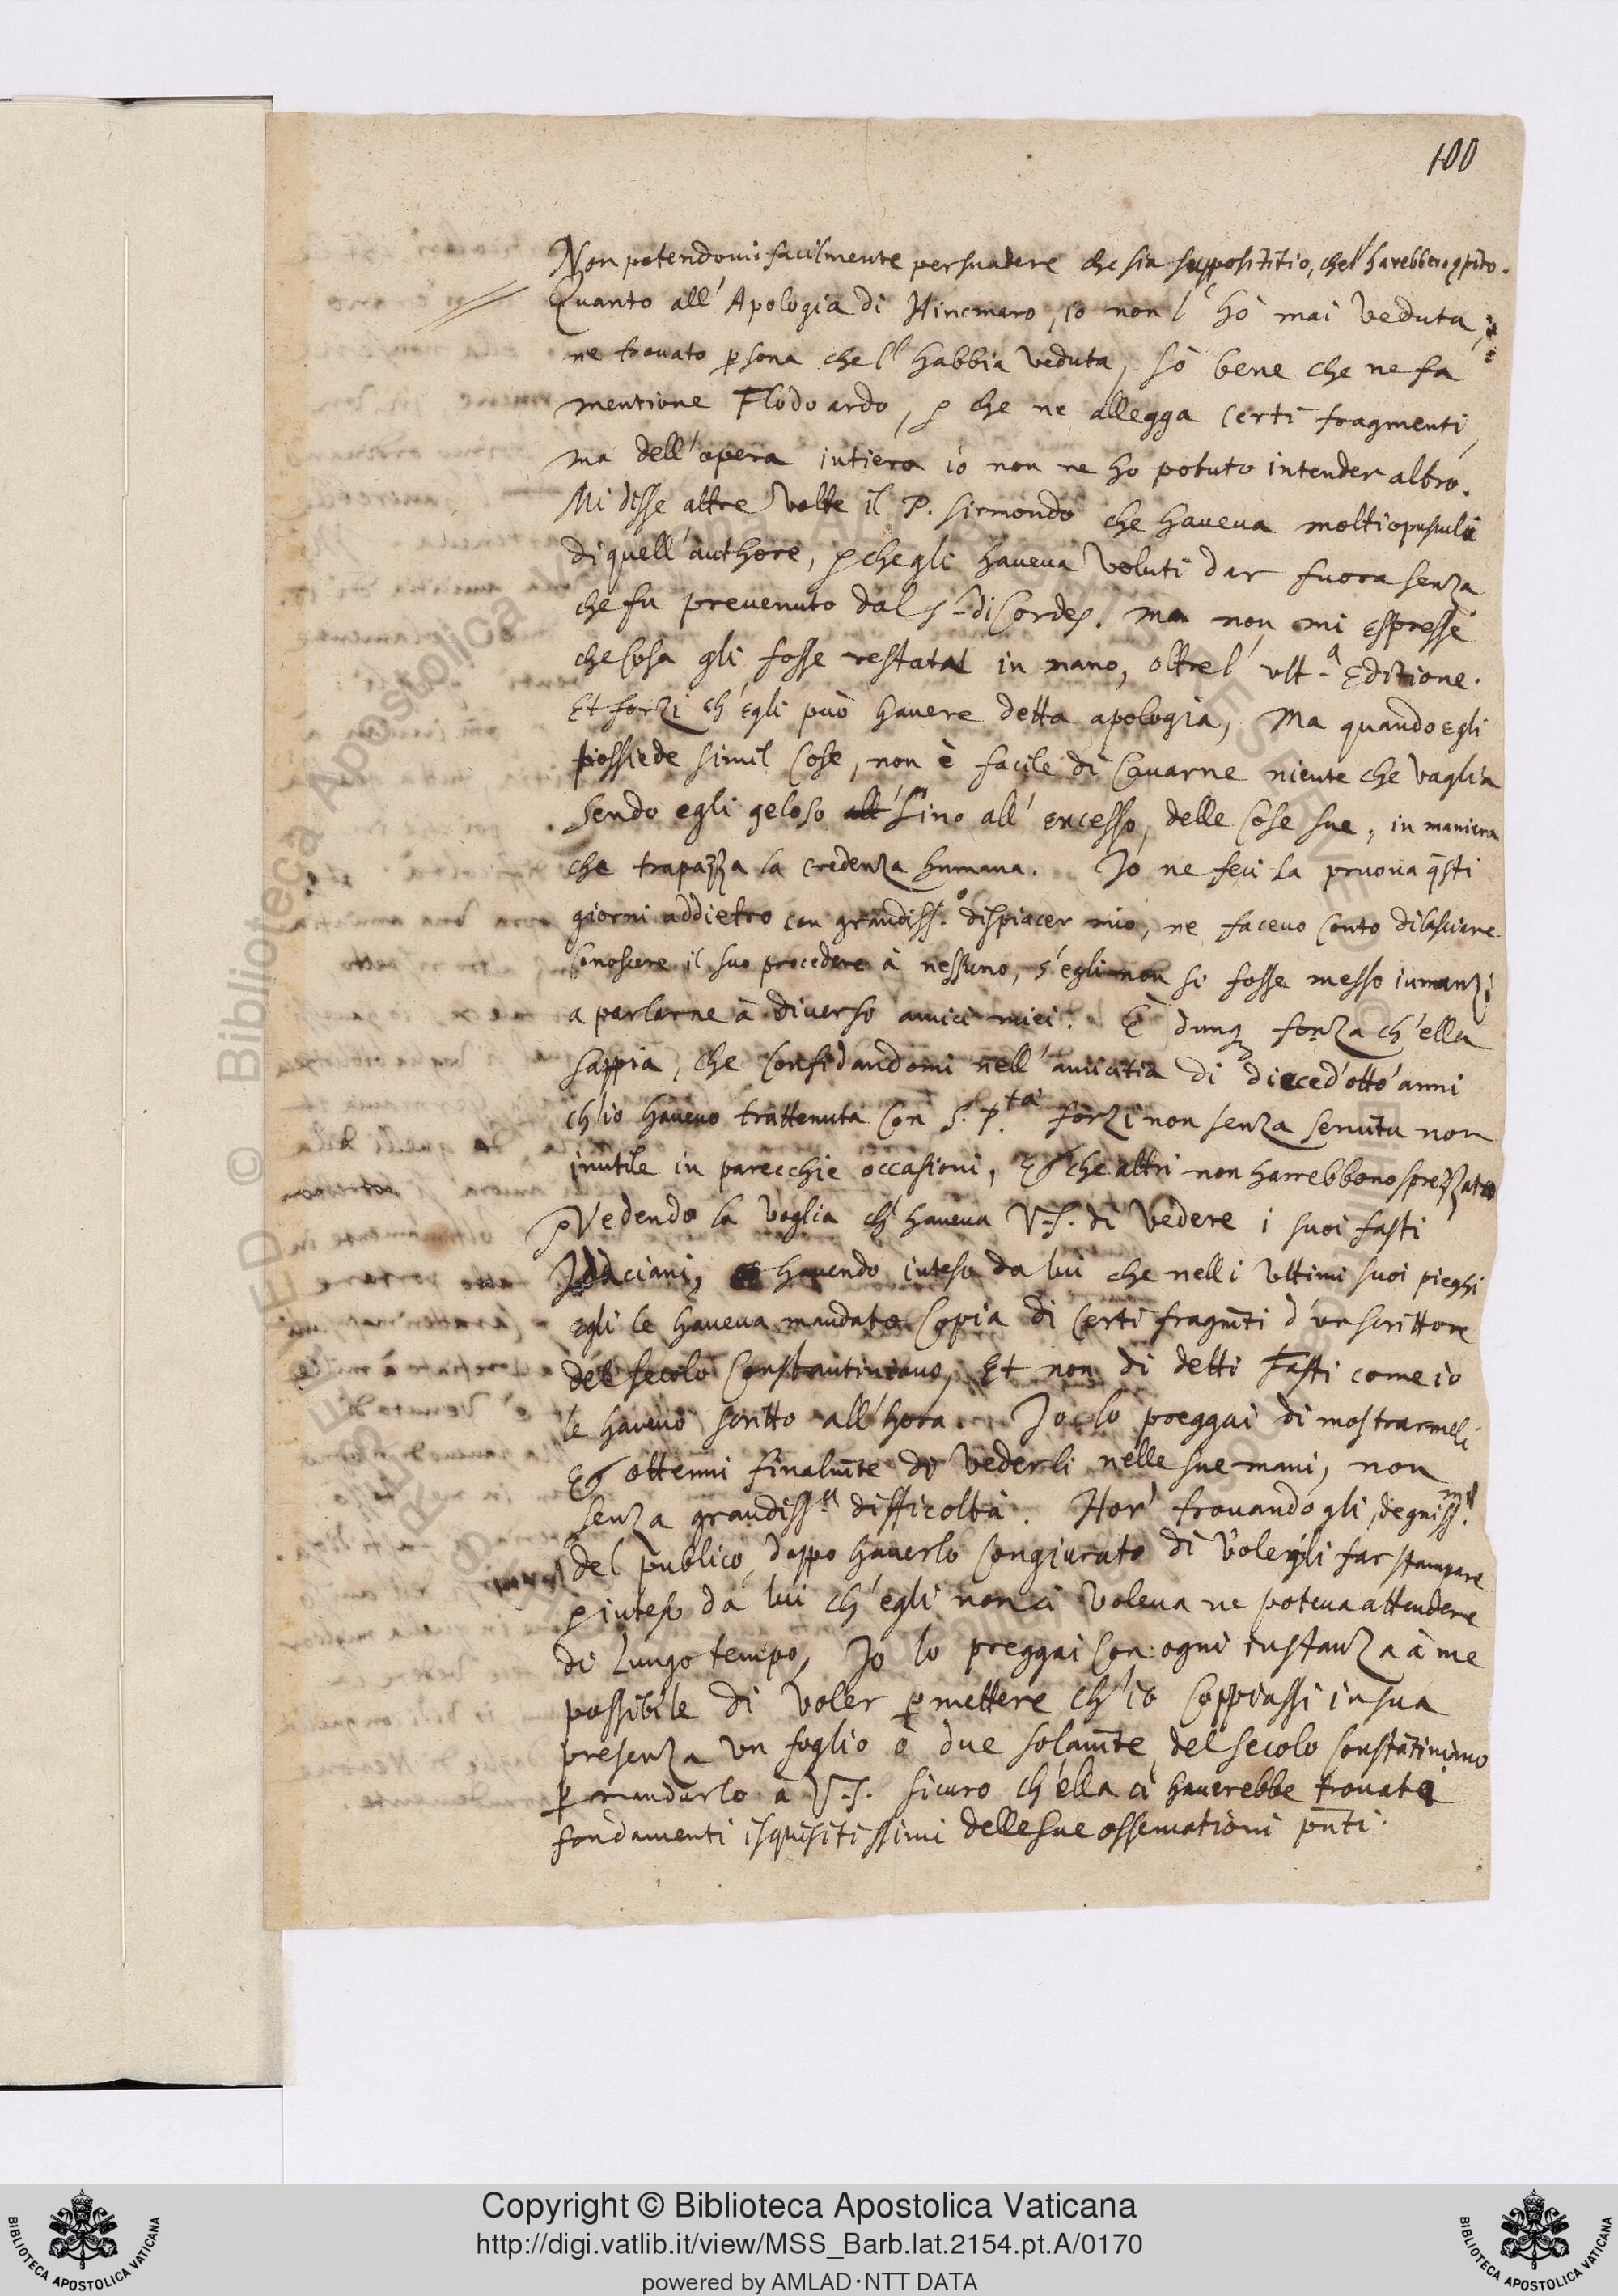 100
Non potendomi facilmente persuadere che sia supposititio, che l' harebbero
Quanto all' Apologia di Hincmaro, io non l' hò mai veduta,
ne trovato psona che l' habbia veduta, sò bene che ne fa
mentione Flodoardo, & che ne allegga certi fragmenti,
ma dell' opera intiera io non ne ho potuto intender altro.
Mi disse altre volte il P. Sirmondo che haveva molti opusculi
di quell' authore, & che gli haveva voluti dar fuora senza
che fu prevenuto dal Sr di Cordes. ma non mi espresse
che cosa gli fosse restata in mano, oltre l' ult.a Editione.
Et forzi ch' egli può havere detta apologia, Ma quando egli
possiede simil cose, non è facile di cavarne niente che vaglia
sendo egli geloso all' sino all' excesso, delle cose sue, in maniera
che trapazza la credenza humana. Io ne feci la pruova qsti
giorni addietro con grandiss.o dispiacer mio, ne facevo conto di lasciare
conoscere il suo procedere à nessuno, s' egli non si fosse messo innanzi
a parlarne à diverso amici miei. È dunq forza ch' ella
sappia, che confidandomi nell' amicitia di diecedotto anni
ch' io havevo trattenuta con S. P.tà forzi non senza servitu non
inutile in parecchie occasioni, & che altri non harrebbono sprezzato
& Vedendo la voglia ch' haveva V.S. di vedere i suoi fasti
Idaciani, & havendo inteso da lui che nelli ultimi suoi pieghi
egli le haveva mandato copia di certi fragmti d' un scrittore
del secolo Constantiniano, Et non di detti Fasti come io
le havevo scritto all' hora. Io lo preggai di mostrarmeli
& ottenni finalmte di vederli nelle sue mani, non
senza grandiss.a difficoltà. Hor' trovandogli, degniss.mi
del publico, doppo haverlo congiurato di volerli far stampare
& inteso da lui ch' egli non ci voleva ne poteva attendere
di lungo tempo, Io lo preggai con ogni instanza à me
possibile di voler pmettere ch' io coppiassi in sua
presenza un foglio ò due solamte del secolo constātiniano
p mandarlo a V.S. sicuro ch' ella ci haverebbe trovato
fondamenti isquisitissimi delle sue osservationi pnti.
© Biblioteca Apostolica Vaticana
Copyright © Biblioteca Apostolica Vaticana
http://digi.vatlib.it/view/MSS_Barb.lat.2154.pt.A/0170
powered by AMLAD·NTT DATA
BIBLIOTECA APOSTOLICA VATICANA
BIBLIOTECA APOSTOLICA VATICANA